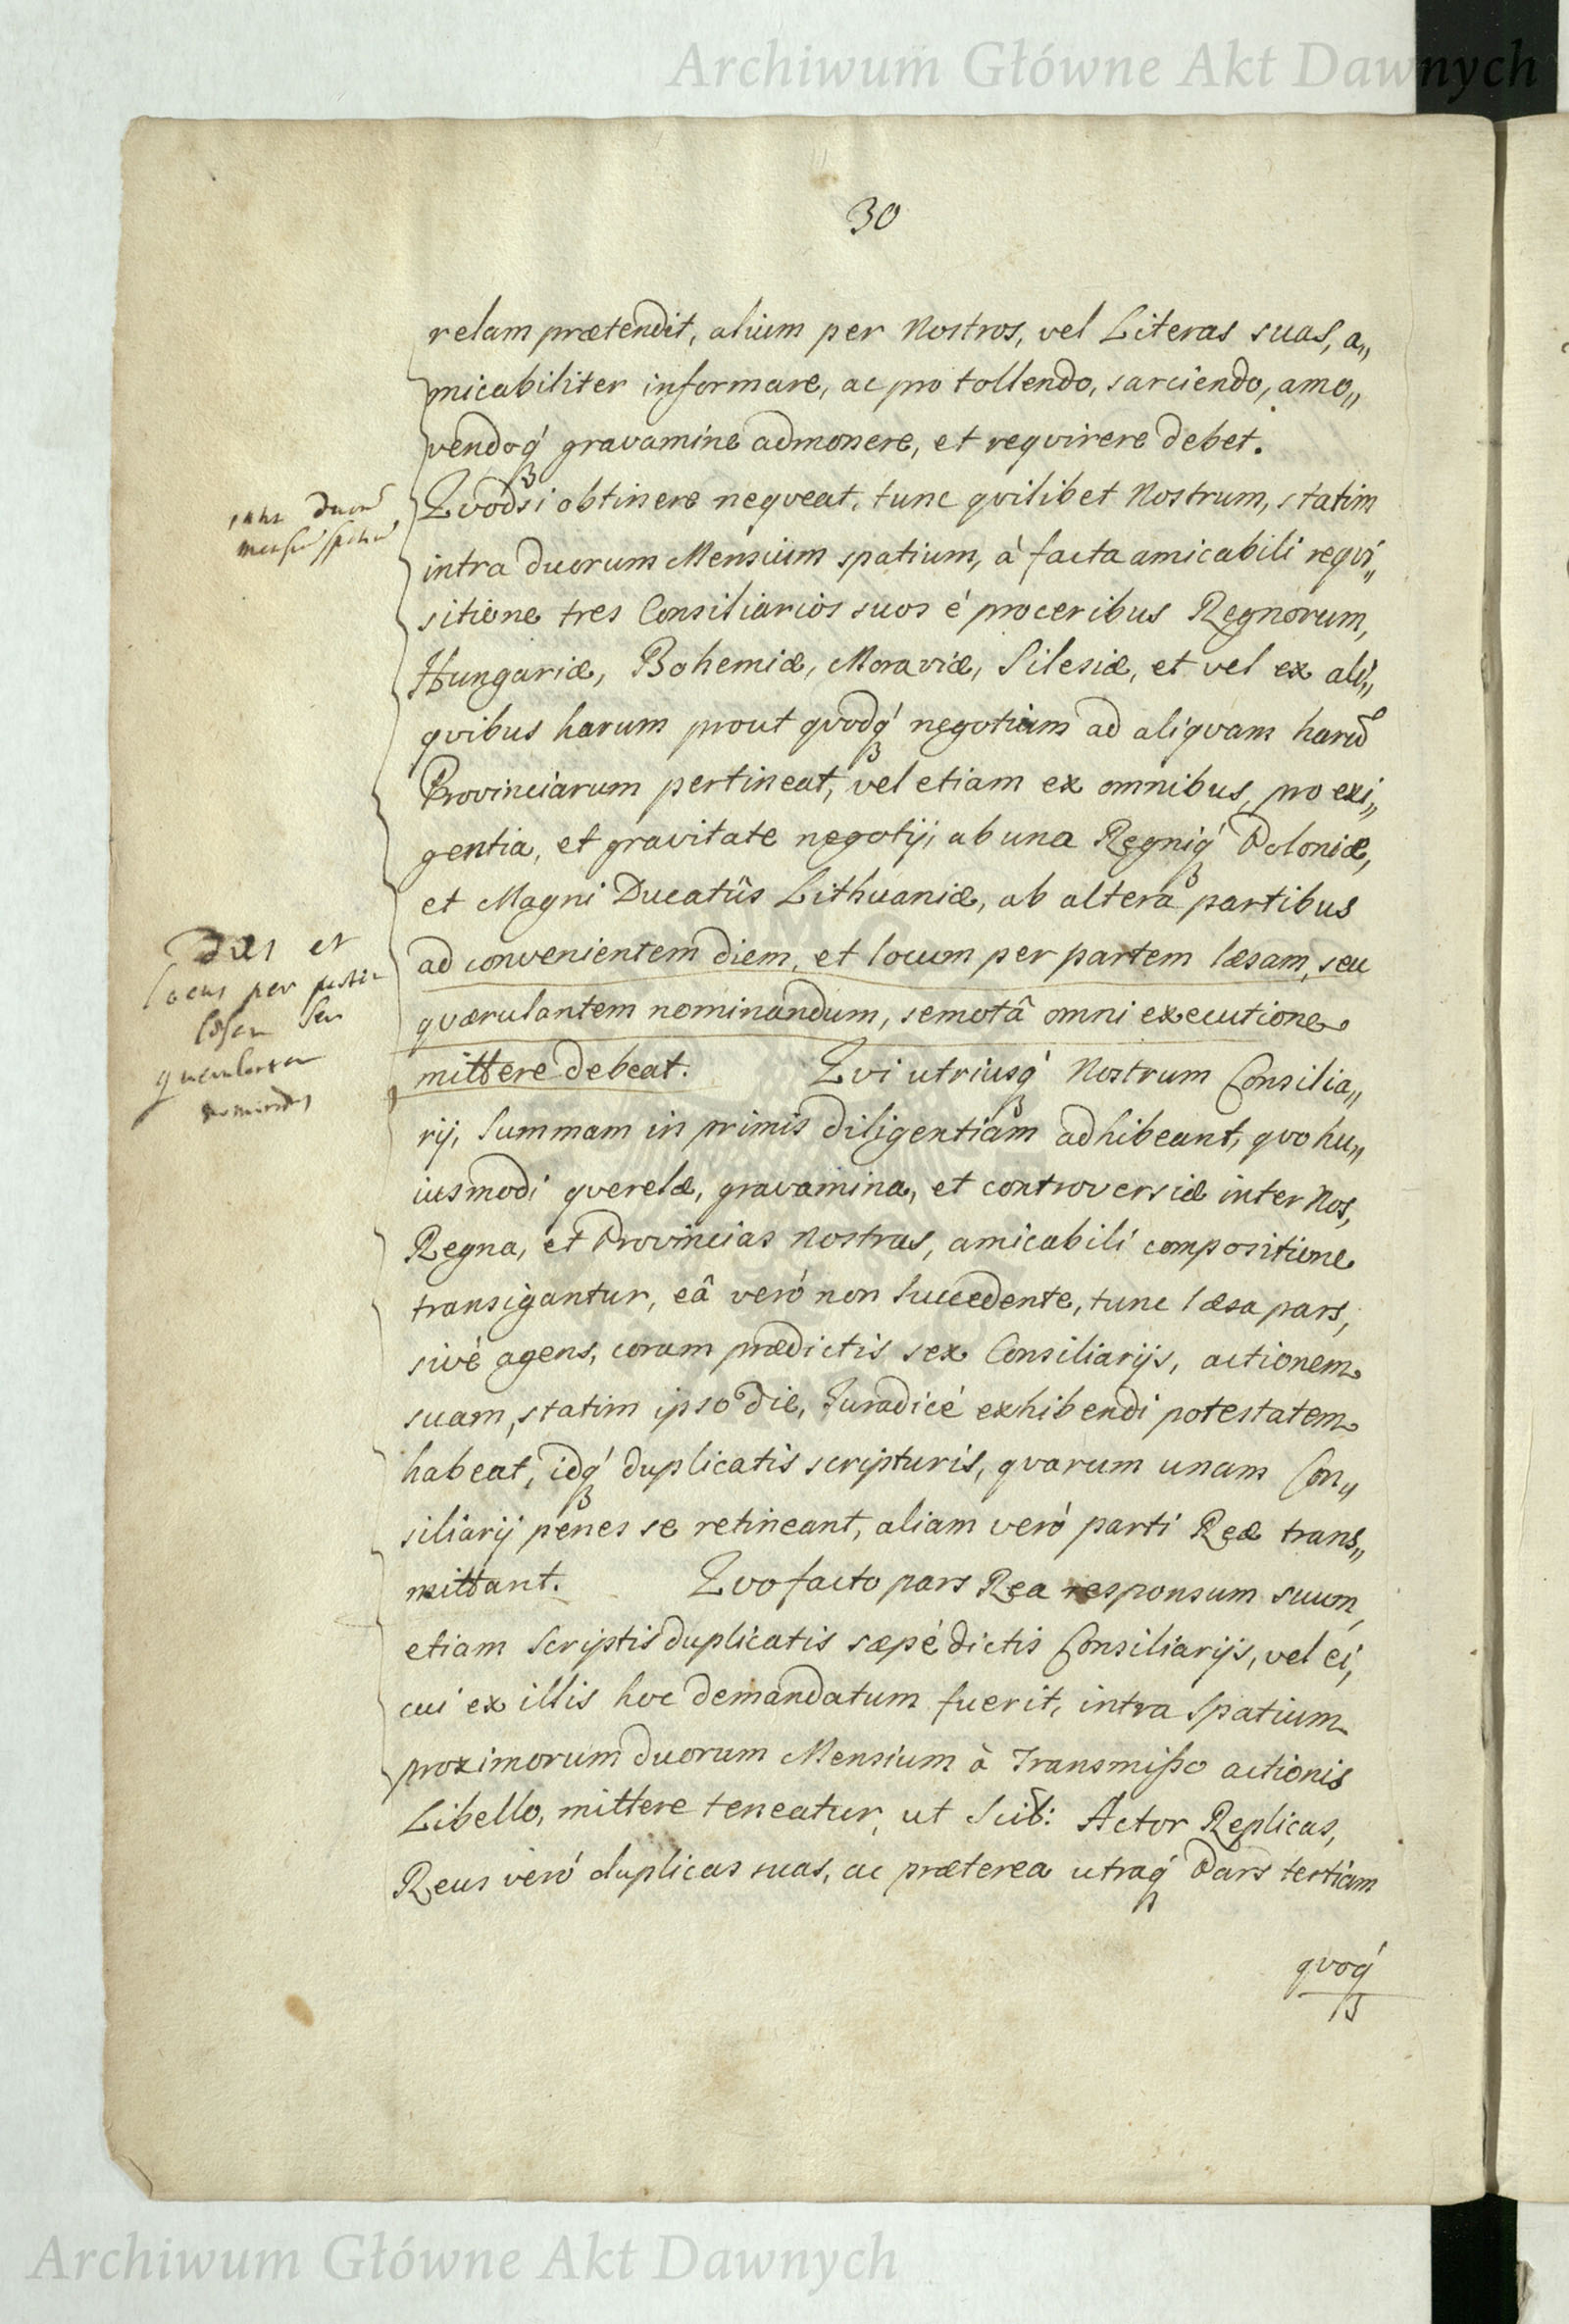 Archiwum Główne Akt Dawnych
30
relam prætendit, alium per Nostros, vel Literas suas, a„
micabiliter informare, ac pro tollendo, sarciendo, amo„
vendoq́ gravamine admonere, et reqvirere debet.
Qvodsi obtinere neqveat, tunc qvilibet Nostrum, statim
intra duorum Mensium spatium, à facta amicabili reqvi„
sitione tres Consiliarios suos é proceribus Regnorum,
Hungariæ, Bohemiæ, Moraviæ, Silesiæ, et vel ex ali„
qvibus harum prout qvodq́ negotium ad aliqvam harū
Provinciarum pertineat, vel etiam ex omnibus, pro exi„
gentia, et gravitate negotij, ab una Regniq́ Poloniæ,
et Magni Ducatûs Lithuaniæ, ab altera partibus
ad convenientem diem, et locum per partem læsam, seu
qværulantem nominandum, semotâ omni executione
mittere debeat. Qvi utriusq́ Nostrum Consilia„
rij, Summam in primis diligentiam adhibeant, qvo hu„
iusmodi qverelæ, gravamina, et controversiæ inter Nos,
Regna, et Provincias Nostras, amicabili compositione
transigantur, eâ veró non Succedente, tunc læsa pars,
sivè agens, coram prædictis sex Consiliarijs, actionem
suam, statim ipso die, Juradicé exhibendi potestatem
habeat, idq́ duplicatis scripturis, qvarum unam Con„
siliarij penes se retineant, aliam veró parti Reæ trans„
mittant. Qvo facto pars Rea responsum suum,
etiam Scriptis duplicatis sæpé dictis Consiliarijs, vel ei,
cui ex illis hoc demandatum fuerit, intra Spatium
proximorum duorum Mensium à Transmißo actionis
Libello, mittere teneatur, ut Scil: Actor Replicas,
Reus veró duplicas suas, ac præterea utraq́ Pars tertiam
qvoq́
duorū
dies et
locus per
læsam seu
Archiwum Główne Akt Dawnych